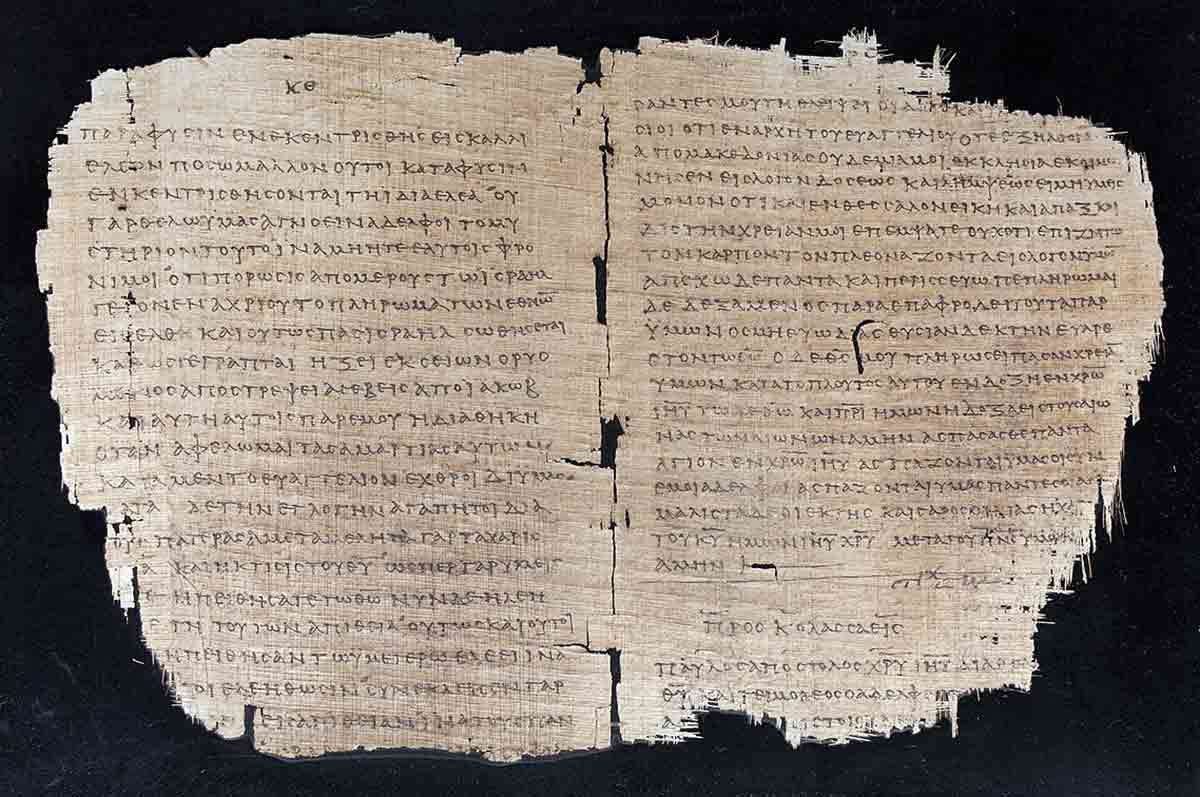 ΚΘ
ΠΑΡΑΦΥϹΙΝ ΕΝΕΚΕΝΤΡΙϹΘΗϹ ΕΙϹ ΚΑΛΛΙ
ΕΛΕΟΝ ΠΟϹΩ ΜΑΛΛΟΝ ΟΥΤΟΙ ΚΑΤΑ ΦΥϹΙΝ
ΕΝΚΕΝΤΡΙϹΘΗϹΟΝΤΑΙ ΤΗ ΙΔΙΑ ΕΛΕΑ ΟΥ
ΓΑΡ ΘΕΛΩ ΥΜΑϹ ΑΓΝΟΕΙΝ ΑΔΕΛΦΟΙ ΤΟ ΜΥ
ϹΤΗΡΙΟΝ ΤΟΥΤΟ ΙΝΑ ΜΗ ΗΤΕ ΕΑΥΤΟΙϹ ΦΡΟ
ΝΙΜΟΙ ΟΤΙ ΠΟΡΩϹΙϹ ΑΠΟ ΜΕΡΟΥϹ ΤΩ ΙϹΡΑΗΛ
ΓΕΓΟΝΕΝ ΑΧΡΙ ΟΥ ΤΟ ΠΛΗΡΩΜΑ ΤΩΝ ΕΘΝΩ̅
ΕΙϹΕΛΘΗ ΚΑΙ ΟΥΤΩϹ ΠΑϹ ΙϹΡΑΗΛ ϹΩΘΗϹΕΤΑΙ
ΚΑΘΩϹ ΓΕΓΡΑΠΤΑΙ ΗΞΕΙ ΕΚ ϹΕΙΩΝ Ο ΡΥΟ
ΜΕΝΟϹ ΑΠΟϹΤΡΕΨΕΙ ΑϹΕΒΕΙϹ ΑΠΟ ΙΑΚΩΒ
ΚΑΙ ΑΥΤΗ ΑΥΤΟΙϹ ΠΑΡ ΕΜΟΥ Η ΔΙΑΘΗΚΗ
ΟΤΑΝ ΑΦΕΛΩΜΑΙ ΤΑϹ ΑΜΑΡΤΙΑϹ ΑΥΤΩΝ
ΚΑΤΑ ΜΕΝ ΤΟ ΕΥΑΓΓΕΛΙΟΝ ΕΧΘΡΟΙ ΔΙ ΥΜΑϹ
ΚΑΤΑ ΔΕ ΤΗΝ ΕΓΛΟΓΗΝ ΑΓΑΠΗΤΟΙ ΔΙΑ
ΤΟΥϹ ΠΑΤΕΡΑϹ ΑΜΕΤΑΜΕΛΗΤΑ ΓΑΡ ΤΑ ΧΑΡΙϹ
ΚΑΙ Η ΚΤΙϹΙϹ ΤΟΥ ΘΥ ΩϹΠΕΡ ΓΑΡ ΥΜΕΙϹ
ΗΠΕΙΘΗϹΑΤΕ ΤΩ ΘΩ ΝΥΝ ΔΕ ΗΛΕΗ
ΤΗ ΤΟΥΤΩΝ ΑΠΙΘΕΙΑ ΟΥΤΩϹ ΚΑΙ ΟΥΤΟΙ
ΗΠΕΙΘΗϹΑΝ ΤΩ ΥΜΕΤΕΡΩ ΕΛΕΕΙ ΙΝΑ
ΕΛΕΗΘΩϹΙΝ ϹΥΝΕΚΛΕΙϹΕΝ ΓΑΡ
ΕΙϹ ΑΠΘΕΙΑΝ ΙΝΑ ΤΟΥϹ ΠΑΝ
ΟΤΙ ΕΝ ΑΡΧΗ ΤΟΥ ΕΥΑΓΓΕΛΙΟΥ ΟΤΕ ΕΞΗΛΘΟΝ
ΑΠΟ ΜΑΚΕΔΟΝΙΑϹ ΟΥΔΕΜΙΑ ΜΟΙ ΕΚΚΛΗϹΙΑ ΕΚΟΙΝΩ
ΝΗϹΕΝ ΕΙϹ ΛΟΓΟΝ ΔΟϹΕΩϹ ΚΑΙ ΛΗΜΨΕΩϹ ΕΙ ΜΗ ΥΜΕΙϹ
ΜΟΝΟΝ ΟΤΙ ΚΑΙ ΕΝ ΘΕϹϹΑΛΟΝΕΙΚΗ ΚΑΙ ΑΠΑΞ ΚΑΙ
ΔΙϹ ΤΗΝ ΧΡΕΙΑΝ ΜΟΙ ΕΠΕΜΨΑΤΕ ΟΥΧ ΟΤΙ ΕΠΙΖΗΤΩ
ΤΟΝ ΚΑΡΠΟΝ ΤΟΝ ΠΛΕΟΝΑΖΟΝΤΑ ΕΙϹ ΛΟΓΟΝ ΥΜΩΝ
ΑΠΕΧΩ ΔΕ ΠΑΝΤΑ ΚΑΙ ΠΕΡΙϹϹΕΥΩ ΠΕΠΛΗΡΩΜΑΙ
ΔΕ ΔΕΞΑΜΕΝΟϹ ΠΑΡΑ ΕΠΑΦΡΟΔΕΙΤΟΥ ΤΑ ΠΑΡ
ΥΜΩΝ ΟϹΜΗ ΕΥΩΔΙΑϹ ΘΥϹΙΑΝ ΔΕΚΤΗΝ ΕΥΑΡΕ
ϹΤΟΝ ΤΩ ΘΩ̅ Ο ΔΕ ΘϹ̅ ΜΟΥ ΠΛΗΡΩϹΕΙ ΠΑϹΑΝ ΧΡΕΙΑΝ
ΥΜΩΝ ΚΑΤΑ ΤΟ ΠΛΟΥΤΟϹ ΑΥΤΟΥ ΕΝ ΔΟΞΗ ΕΝ ΧΡΩ
ΙΗΥ̅ ΤΩ ΔΕ ΘΩ̅ ΚΑΙ ΠΡΙ̅ ΗΜΩΝ Η ΔΟΞΑ ΕΙϹ ΤΟΥϹ ΑΙΩ
ΝΑϹ ΤΩΝ ΑΙΩΝΩΝ ΑΜΗΝ ΑϹΠΑϹΑϹΘΕ ΠΑΝΤΑ
ΑΓΙΟΝ ΕΝ ΧΡΩ̅ ΙΗΥ̅ ΑϹΠΑΖΟΝΤΑΙ ΥΜΑϹ ΟΙ ϹΥΝ
ΕΜΟΙ ΑΔΕΛΦΟΙ ΑϹΠΑΖΟΝΤΑΙ ΥΜΑϹ ΠΑΝΤΕϹ ΟΙ ΑΓΙ
ΜΑΛΙϹΤΑ ΔΕ ΟΙ ΕΚ ΤΗϹ ΚΑΙϹΑΡΟϹ ΟΙΚΙΑϹ Η ΧΑ
ΤΟΥ ΚΥ̅ ΗΜΩΝ ΙΗΥ̅ ΧΡΥ̅ ΜΕΤΑ ΤΟΥ ΠΝϹ̅ ΥΜΩΝ
ΑΜΗΝ
ΠΡΟϹ ΚΟΛΑϹϹΑΕΙϹ
ΠΑΥΛΟϹ ΑΠΟϹΤΟΛΟϹ ΧΡΥ̅ ΙΗΥ̅ ΔΙΑ ΘΕ
ΘΥ̅ ΚΑΙ ΤΕΙΜΟΘΕΟϹ Ο ΑΔΕΛΦ